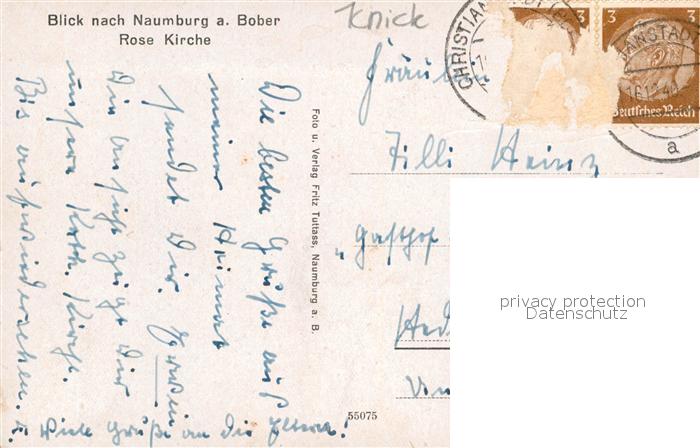 Blick nach Naumburg a. Bober
Rose Kirche
Knick
CHRISTIANSTADT
3
3
16.12.40
Deutsches Reich
a
Die besten Grüße aus
meiner Heimat
sendet Dir Erwin
Die ansicht zeigt Dir
unsere Kath. Kirche.
Bis auf wiedersehen.
Viele Grüße an die Eltern!
Foto u. Verlag Fritz Tuttass, Naumburg a. B.
55075
Fräulein
Tilli Heinz
"Gasthof
privacy protection
Datenschutz